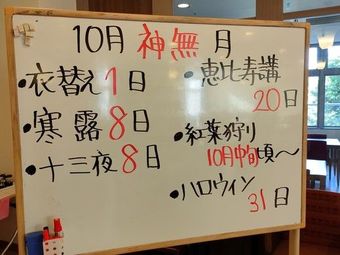 10月 神無月
・衣替え1日
・寒露8日
・十三夜8日
・恵比寿講
20日
・紅葉狩り
10月中旬頃〜
・ハロウィン
31日